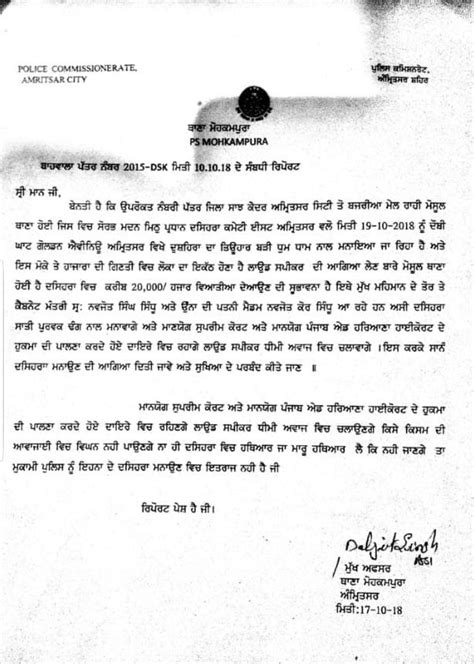 POLICE COMMISSIONERATE,
AMRITSAR CITY
ਪੁਲਿਸ ਕਮਿਸ਼ਨਰੇਟ,
ਅੰਮ੍ਰਿਤਸਰ ਸ਼ਹਿਰ
ਥਾਣਾ ਮੋਹਕਮਪੁਰਾ
PS MOHKAMPURA
ਬਾਹਵਾਲਾ ਪੱਤਰ ਨੰਬਰ 2015-DSK ਮਿਤੀ 10.10.18 ਦੇ ਸੰਬਧੀ ਰਿਪੋਰਟ
ਸ੍ਰੀ ਮਾਨ ਜੀ,
ਬੇਨਤੀ ਹੈ ਕਿ ਉਪਰੋਕਤ ਨੰਬਰੀ ਪੱਤਰ ਜਿਲਾ ਸਾਝ ਕੇਦਰ ਅਮ੍ਰਿਤਸਰ ਸਿਟੀ ਤੋ ਬਜਰੀਆ ਮੇਲ ਰਾਹੀ ਮੋਸੂਲ
ਥਾਣਾ ਹੋਈ ਜਿਸ ਵਿਚ ਸੋਰਭ ਮਦਨ ਮਿਠੂ ਪ੍ਰਧਾਨ ਦਸਿਹਰਾ ਕਮੇਟੀ ਈਸਟ ਅਮ੍ਰਿਤਸਰ ਵਲੋ ਮਿਤੀ 19-10-2018 ਨੂੰ ਦੋਬੀ
ਘਾਟ ਗੋਲਡਨ ਐਵੀਨਿਊ ਅਮ੍ਰਿਤਸਰ ਵਿਖੇ ਦੁਸ਼ਹਿਰਾ ਦਾ ਤਿਉਹਾਰ ਬੜੀ ਧੂਮ ਧਾਮ ਨਾਲ ਮਨਾਇਆ ਜਾ ਰਿਹਾ ਹੈ ਅਤੇ
ਇਸ ਮੋਕੇ ਤੇ ਹਾਜਾਰਾ ਦੀ ਗਿਣਤੀ ਵਿਚ ਲੋਕਾ ਦਾ ਇਕੱਠ ਹੋਣਾ ਹੈ ਲਾਉਡ ਸਪੀਕਰ ਦੀ ਆਗਿਆ ਲੇਣ ਬਾਰੇ ਮੋਸੂਲ ਥਾਣਾ
ਹੋਈ ਹੈ ਦਸਿਹਰਾ ਵਿਚ ਕਰੀਬ 20,000/ ਹਜਾਰ ਵਿਆਤੀਆ ਦੇਆਉਣ ਦੀ ਸੂਭਾਵਨਾ ਹੈ ਇਥੇ ਮੁੱਖ ਮਹਿਮਾਨ ਦੇ ਤੋਰ ਤੇ
ਕੈਬਨੇਟ ਮੰਤਰੀ ਸ੍ਰ: ਨਵਜੋਤ ਸਿੰਘ ਸਿੰਧੂ ਅਤੇ ਉਂਨਾ ਦੀ ਪਤਨੀ ਮੈਡਮ ਨਵਜੋਤ ਕੋਰ ਸਿੰਧੂ ਆ ਰਹੇ ਹਨ ਅਸੀ ਦਸਿਹਰਾ
ਸਾਤੀ ਪੁਰਵਕ ਢੰਗ ਨਾਲ ਮਨਾਵਾਗੇ ਅਤੇ ਮਾਣਯੋਗ ਸੁਪਰੀਮ ਕੋਰਟ ਅਤੇ ਮਾਨਯੋਗ ਪੰਜਾਬ ਐਡ ਹਰਿਆਣਾ ਹਾਈਕੋਰਟ ਦੇ
ਹੁਕਮਾ ਦੀ ਪਾਲਣਾ ਕਰਦੇ ਹੋਏ ਦਾਇਰੇ ਵਿਚ ਰਹਾਗੇ ਲਾਉਡ ਸਪੀਕਰ ਧੀਮੀ ਅਵਾਜ ਵਿਚ ਚਲਾਵਾਗੇ ।ਇਸ ਕਰਕੇ ਸਾਨੰ
ਦਸਿਹਰਾ ਮਨਾਉਣ ਦੀ ਆਗਿਆ ਦਿਤੀ ਜਾਵੇ ਅਤੇ ਸੁਖਿਆ ਦੇ ਪਰਬੰਦ ਕੀਤੇ ਜਾਣ ॥
ਮਾਨਯੋਗ ਸੁਪਰੀਮ ਕੋਰਟ ਅਤੇ ਮਾਨਯੋਗ ਪੰਜਾਬ ਐਡ ਹਰਿਆਣਾ ਹਾਈਕੋਰਟ ਦੇ ਹੁਕਮਾ
ਦੀ ਪਾਲਣਾ ਕਰਦੇ ਹੋਏ ਦਾਇਰੇ ਵਿਚ ਰਹਿਣਗੇ ਲਾਉਡ ਸਪੀਕਰ ਧੀਮੀ ਅਵਾਜ ਵਿਚ ਚਲਾਉਣਗੇ ਕਿਸੇ ਕਿਸਮ ਦੀ
ਆਵਾਜਾਈ ਵਿਚ ਵਿਘਨ ਨਹੀ ਪਾਉਣਗੇ ਨਾ ਹੀ ਦਸਿਹਰਾ ਵਿਚ ਹਥਿਆਰ ਜਾ ਮਾਰੂ ਹਥਿਆਰ ਲੈ ਕਿ ਨਹੀ ਜਾਣਗੇ ਤਾ
ਮੁਕਾਮੀ ਪੁਲਿਸ ਨੂੰ ਇਹਨਾ ਦੇ ਦਸਿਹਰਾ ਮਨਾਉਣ ਵਿਚ ਇਤਰਾਜ ਨਹੀ ਹੈ ਜੀ
ਰਿਪੋਰਟ ਪੇਸ਼ ਹੈ ਜੀ।
Daljit Singh
ASI
ਮੁੱਖ ਅਫਸਰ
ਥਾਣਾ ਮੋਹਕਮਪੁਰਾ
ਅੰਮ੍ਰਿਤਸਰ
ਮਿਤੀ:17-10-18